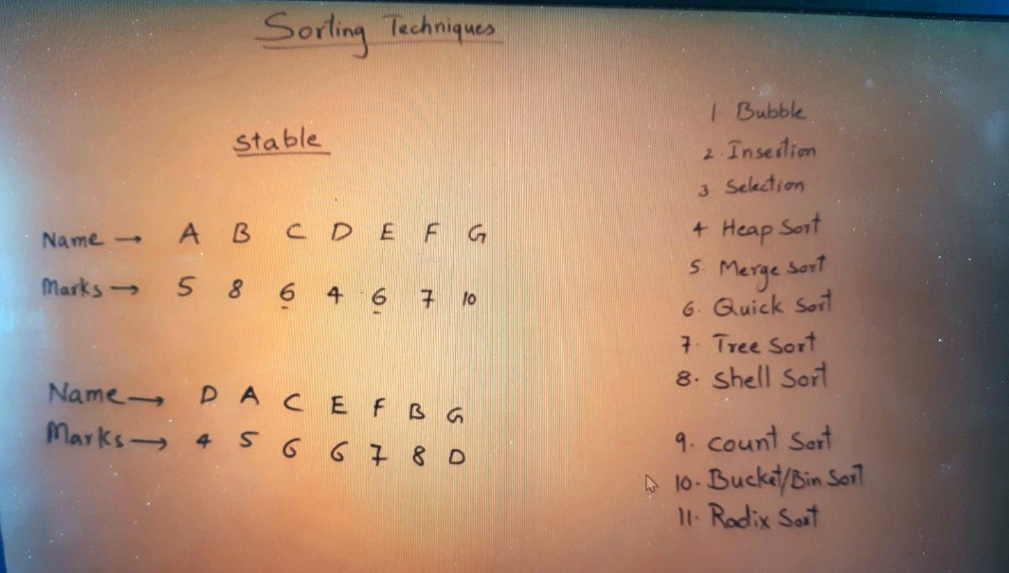 Sorting Techniques
stable
Name → A B C D E F G
Marks → 5 8 6 4 6 7 10
Name → D A C E F B G
Marks → 4 5 6 6 7 8 D
1 Bubble
2. Insertion
3 Selection
4 Heap Sort
5. Merge Sort
6. Quick Sort
7. Tree Sort
8. Shell Sort
9. Count Sort
10. Bucket/Bin Sort
11. Radix Sort